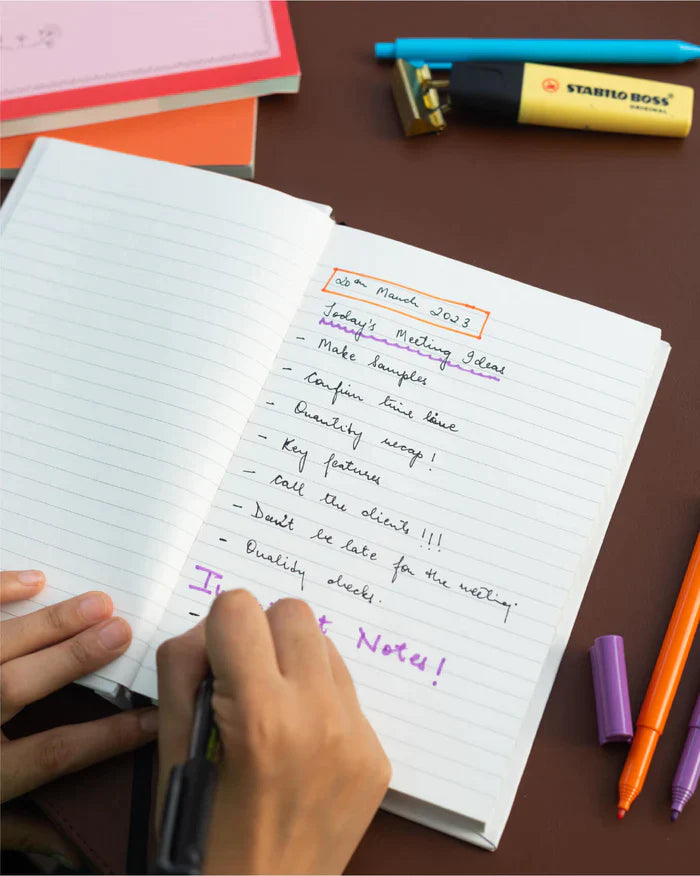 STABILO BOSS
ORIGINAL
20th March 2023
Today's Meeting Ideas
- Make Samples
- Confirm time line
- Quantity recap!
- Key features
- call the clients !!!
- Don't be late for the meeting.
- Quality checks.
Notes!
-